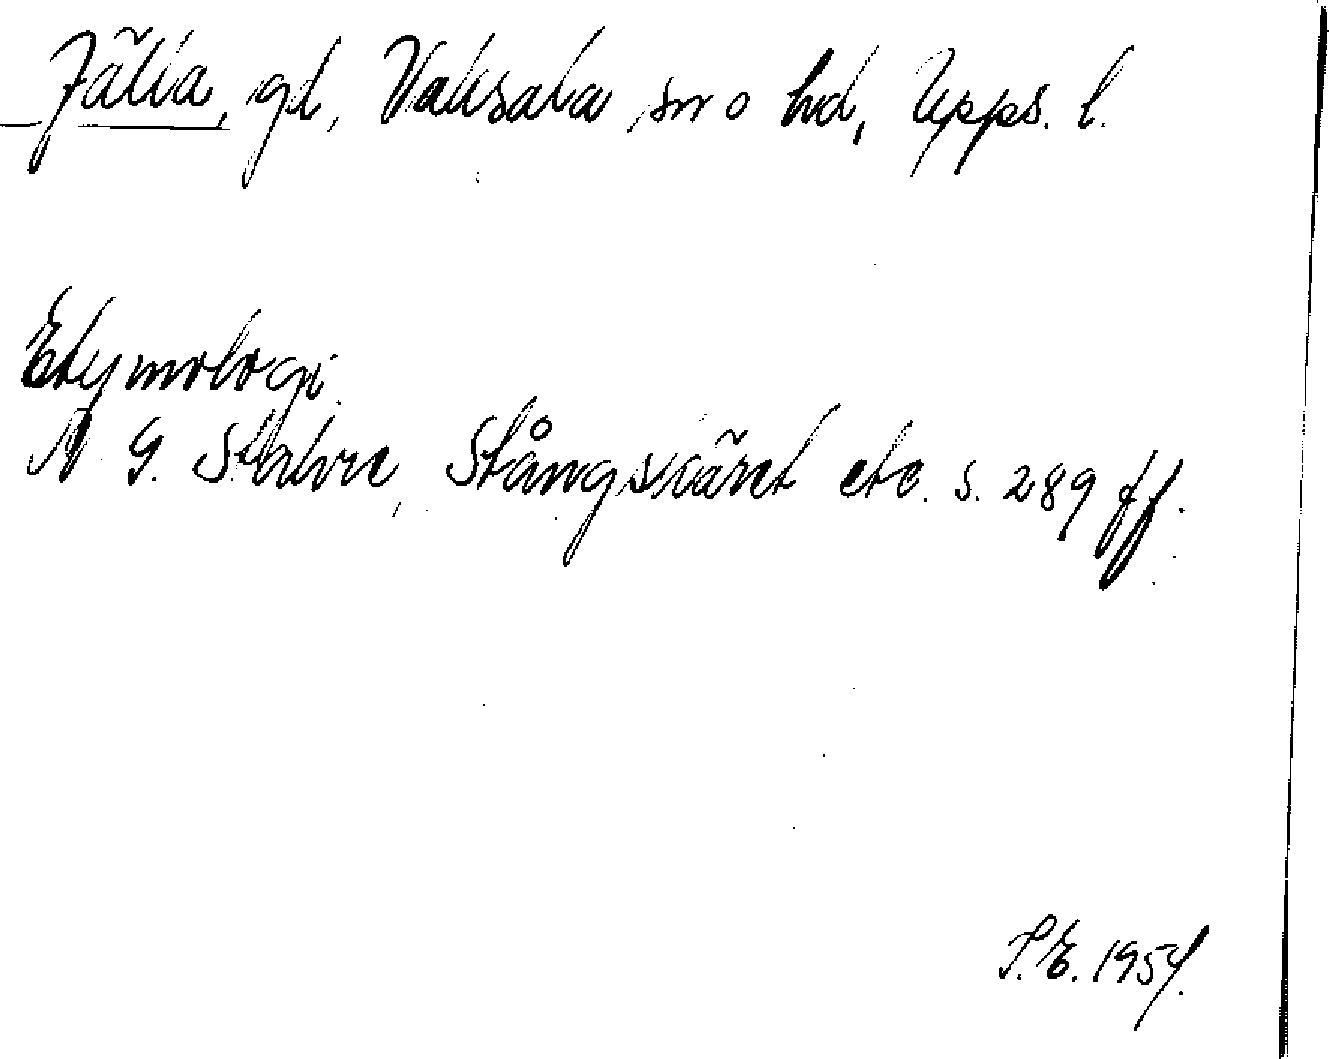 Jälla, gd, Vaksala sn o hd, Upps. l.
Etymologi
N G. Stahre, Stångskäret etc. s. 289 ff.
S.E. 1954.